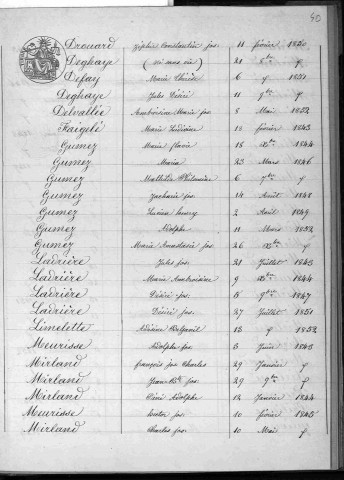 50
Drouard Zéphir Constantin jos. 11 février 1850
Deghaye (né sans vie) 21 8bre
Defay Marie 6 1851
Deghaye Jules Désiré 11 9bre
Delvallée Ambroisine Marie jos. 8 Mai 1852
Faigelé Marie Ludivine 18 février 1843
Gumez Marie flavie 18 Xbre 1844
Gumez Maria 23 Mars 1846
Gumez Mathilde Philomène 6 7bre
Gumez Zacharie jos. 14 Août 1848
Gumez 2 Avril 1849
Gumez Adolphe 11 Mars 1852
Gumez Marie Anastasie jos. 26 Xbre
Ladrière Jules jos. 21 Juillet 1843
Ladrière Marie Ambroisine 9 Xbre 1844
Ladrière Désiré jos. 18 9bre 1847
Ladrière Désiré jos. 27 Juillet 1851
Limelette 13 1852
Meurisse Adolphe jos. 3 Juin 1843
Mirland françois jos. Charles 29 Janvier
Mirland Jean Bte jos. 29 9bre
Mirland Adolphe 12 Janvier 1844
Meurisse Victor jos. 10 février 1845
Mirland Charles jos. 10 Mai